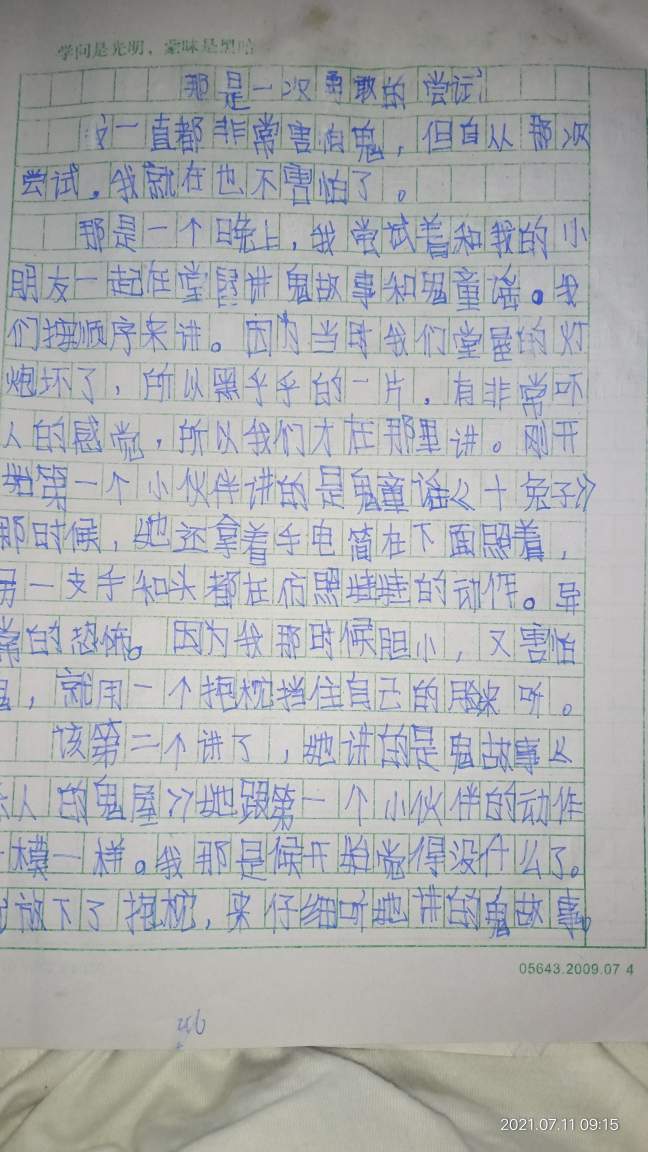 学问是光明，蒙昧是黑暗
那是一次勇敢的尝试
一直都非常害怕鬼，但自从那次
尝试，我就在也不害怕了。
那是一个晚上，我尝试着和我的小
朋友一起在堂屋讲鬼故事和鬼童谣。我
们按顺序来讲。因为当时我们堂屋的灯
炮坏了，所以黑乎乎的一片，有非常吓
人的感觉，所以我们才在那里讲。刚开
始第一个小伙伴讲的是鬼童谣《十兔子》
那时候，她还拿着手电筒在下面照着，
用一支手和头都在仿照娃娃的动作。异
常的恐怖。因为我那时候胆小，又害怕
鬼，就用一个抱枕挡住自己的脸来听。
该第二个讲了，她讲的是鬼故事《
人的鬼屋》她跟第一个小伙伴的动作
一模一样。我那是候开始觉得没什么了。
放下了抱枕，来仔细听她讲的鬼故事。
05643.2009.07 4
2021.07.11 09:15